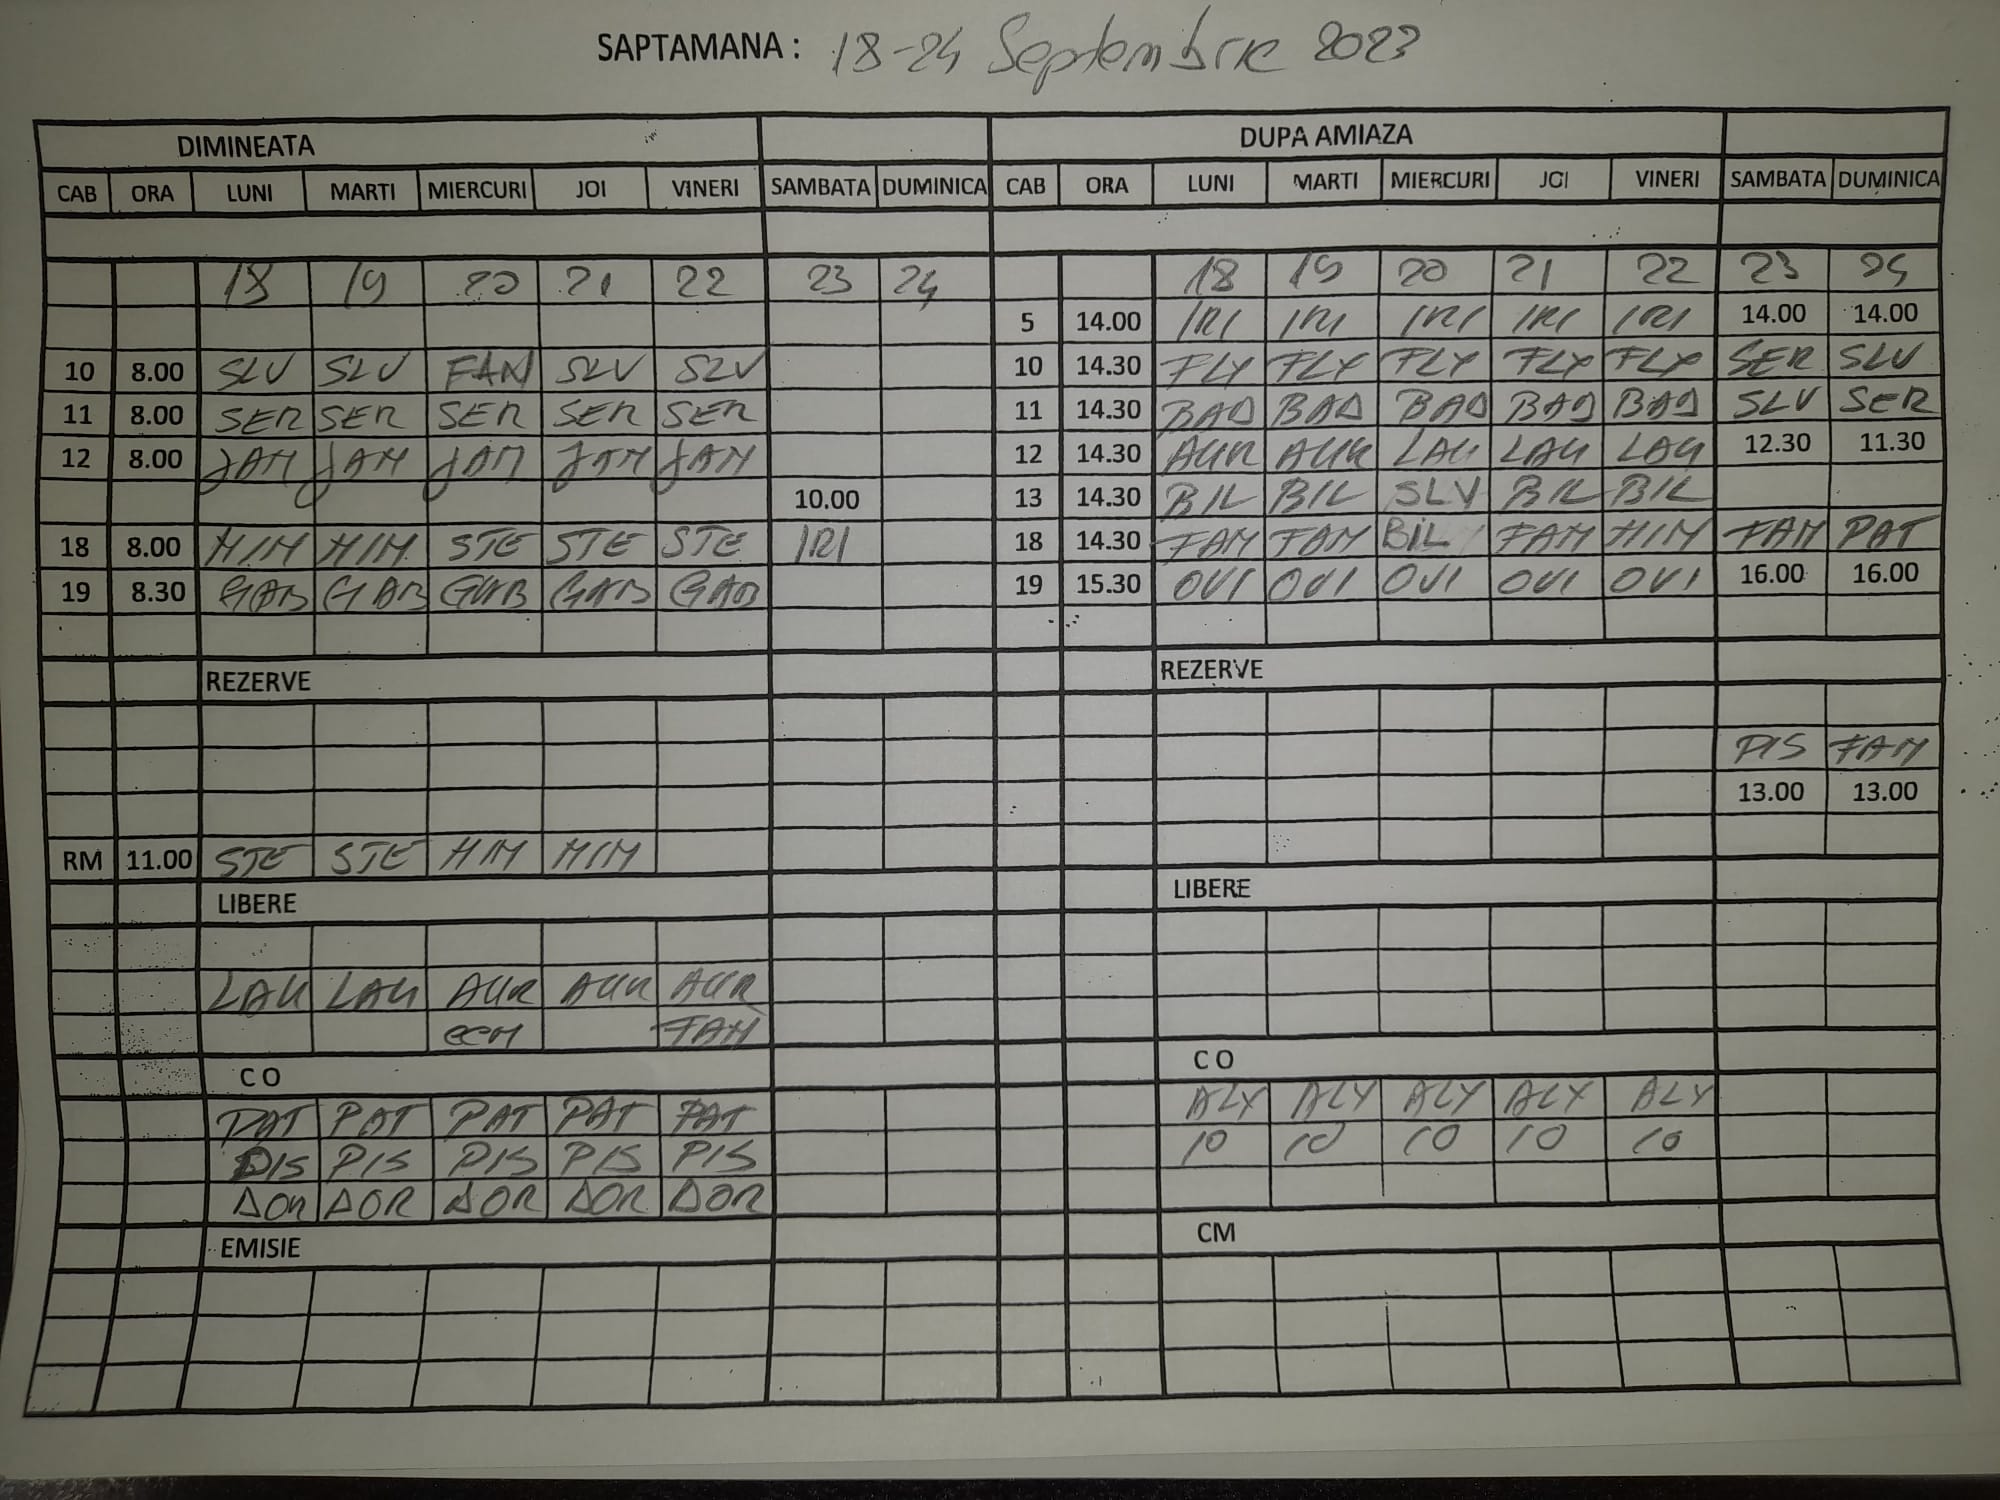 SAPTAMANA : 18-24 Septembrie 2023
DIMINEATA DUPA AMIAZA
CAB ORA LUNI MARTI MIERCURI JOI VINERI SAMBATA DUMINICA CAB ORA LUNI MARTI MIERCURI JOI VINERI SAMBATA DUMINICA
18 19 20 21 22 23 24 18 19 20 21 22 23 24
5 14.00 IRI IRI IRI IRI IRI 14.00 14.00
10 8.00 SLV SLV FAN SLV SLV 10 14.30 FLY FLY FLY FLY FLY SER SLV
11 8.00 SER SER SER SER SER 11 14.30 BAD BAD BAD BAD BAD SLV SER
12 8.00 JAM JAM JAM JAM JAM 12 14.30 AUR AUR LAU LAU LAU 12.30 11.30
10.00 13 14.30 BIL BIL SLV BIL BIL
18 8.00 MIM MIM STE STE STE IRI 18 14.30 FAM FAM BIL FAM MIM FAM PAT
19 8.30 GAB GAB GAB GAB GAB 19 15.30 OVI OVI OVI OVI OVI 16.00 16.00
REZERVE REZERVE
PIS FAM
13.00 13.00
RM 11.00 STE STE MIM MIM
LIBERE LIBERE
LAU LAU AUR AUR AUR
FAM
C O C O
PAT PAT PAT PAT PAT ALY ALY ALY ALY ALY
PIS PIS PIS PIS PIS 10 10 10 10 10
DOR DOR DOR DOR DOR
EMISIE CM